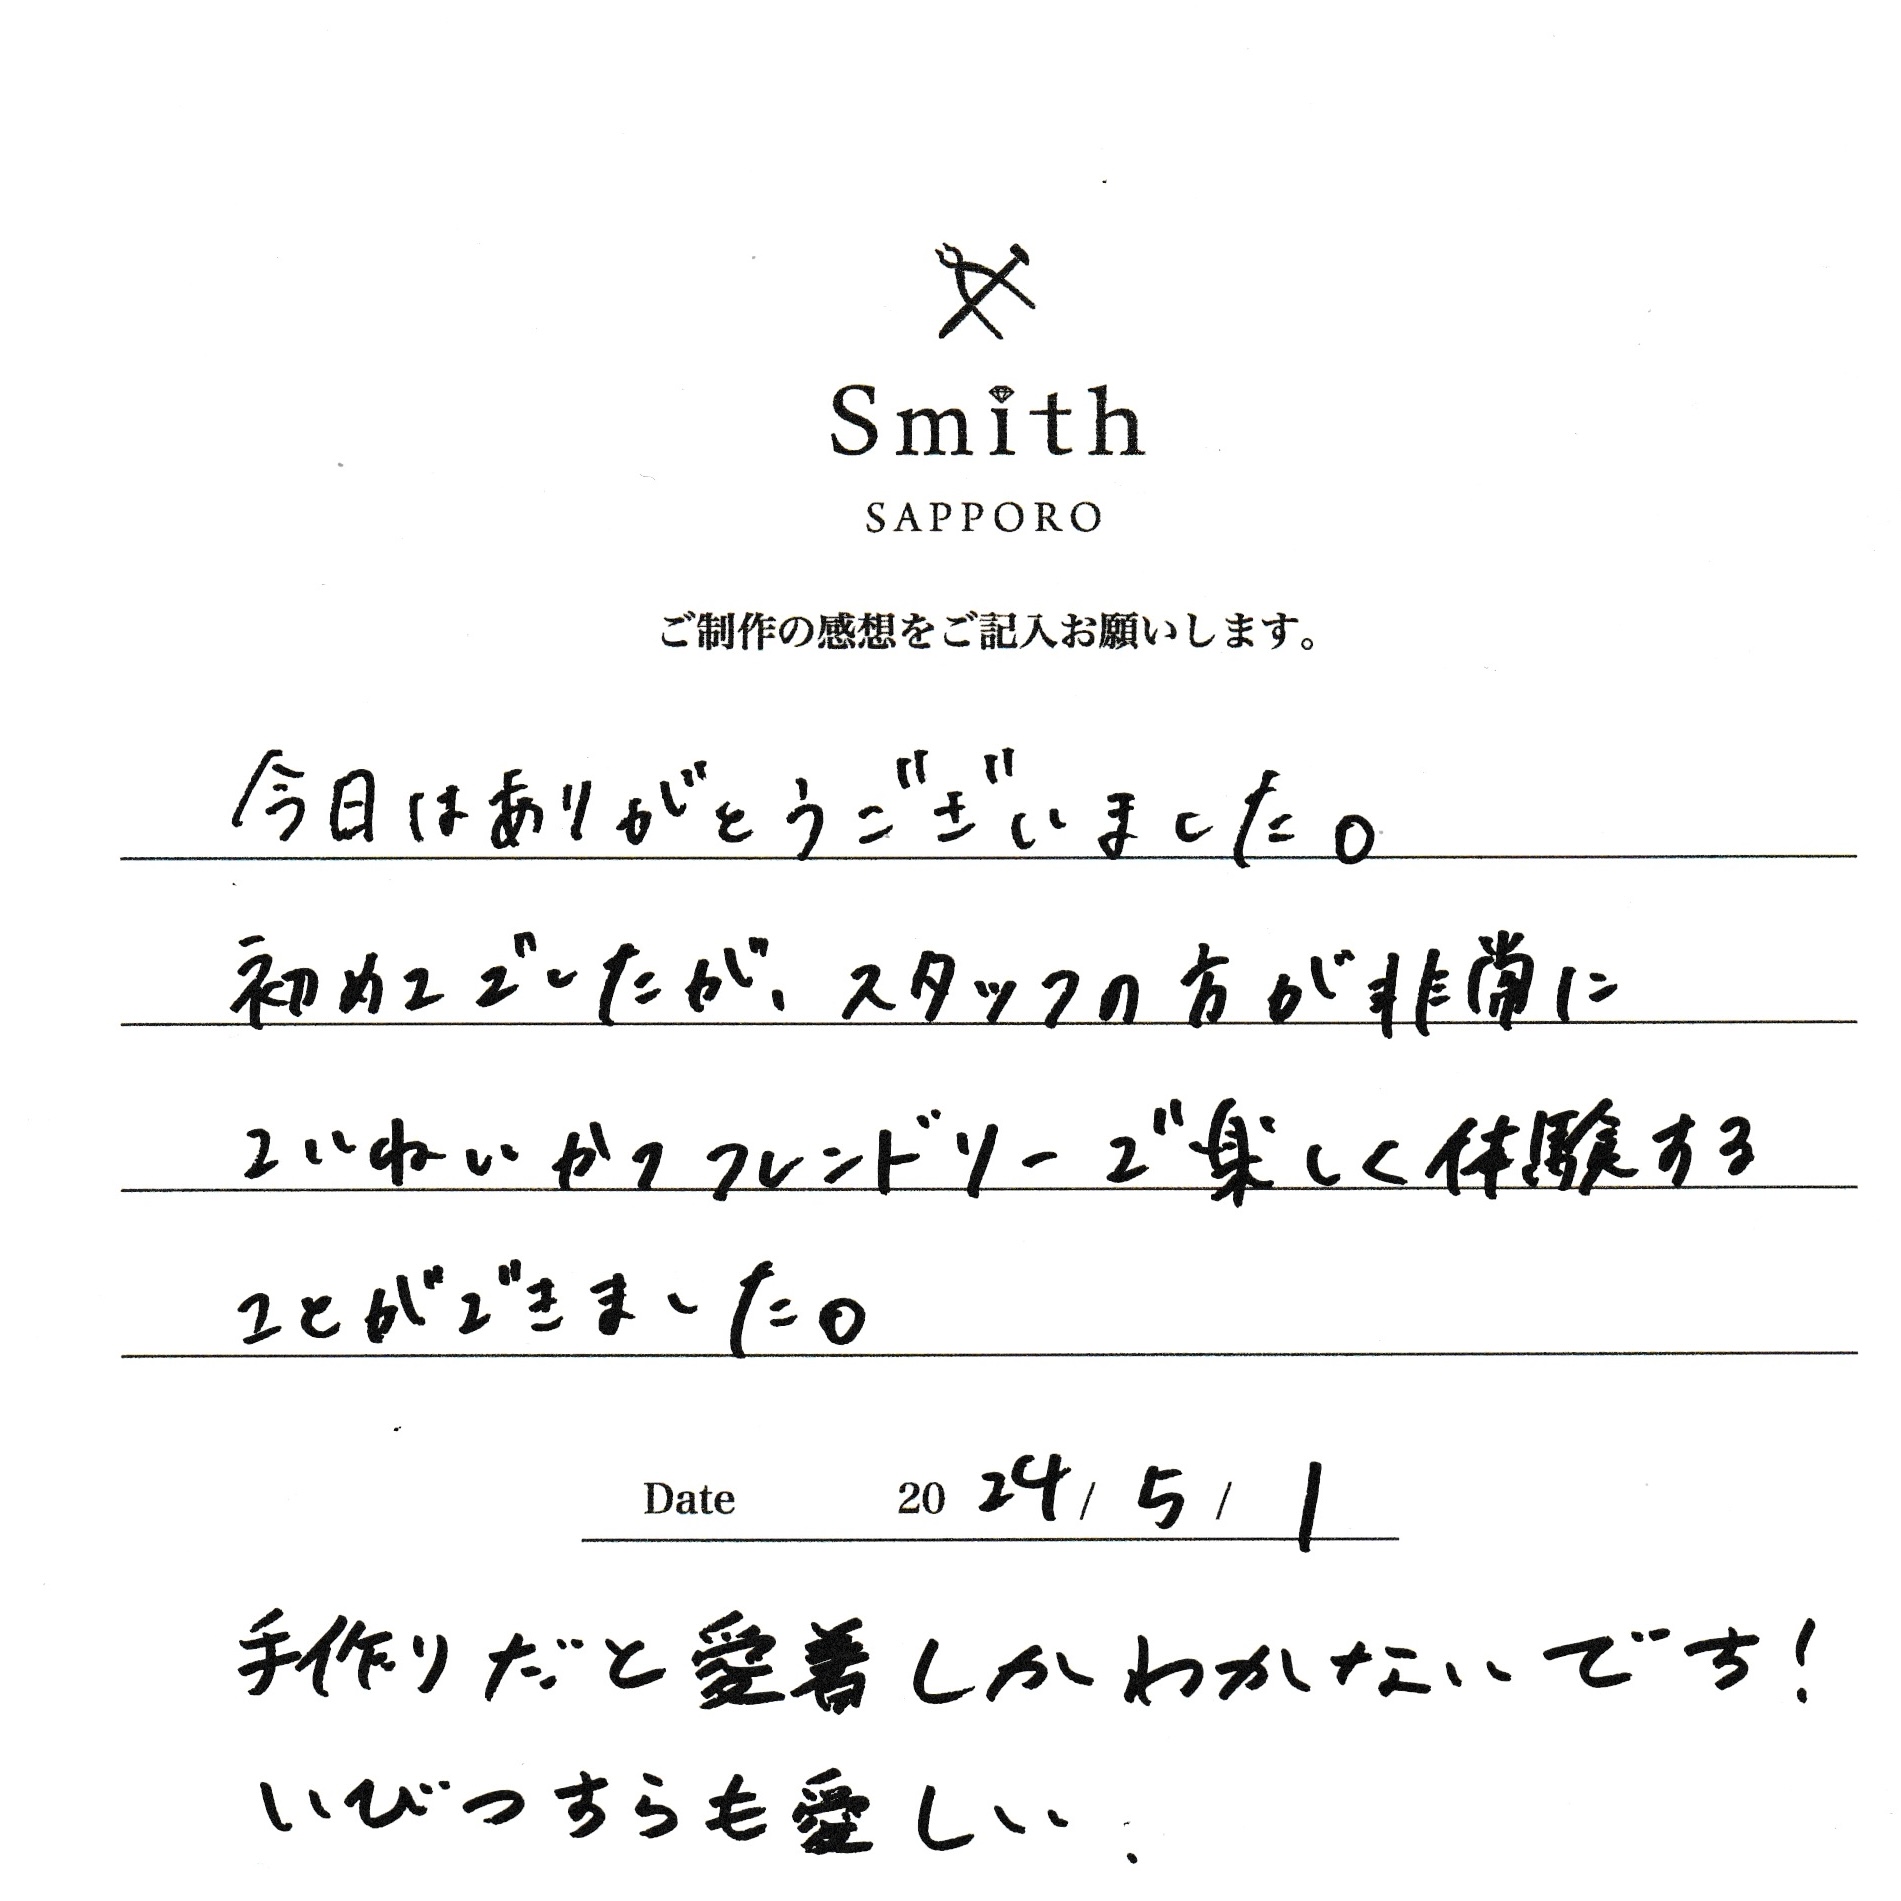 Smith
SAPPORO
ご制作の感想をご記入お願いします。
今日はありがとうございました。
初めてでしたが、スタッフの方が非常に
ていねいかつフレンドリーで楽しく体験する
ことができました。
Date 2024/5/1
手作りだと愛着しかわかないです!
いびつすらも愛しい.